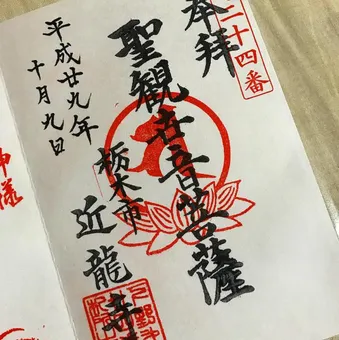 二十四番
奉拝
聖観世音菩薩
栃木市
近龍寺
平成廿九年
十月九日
様